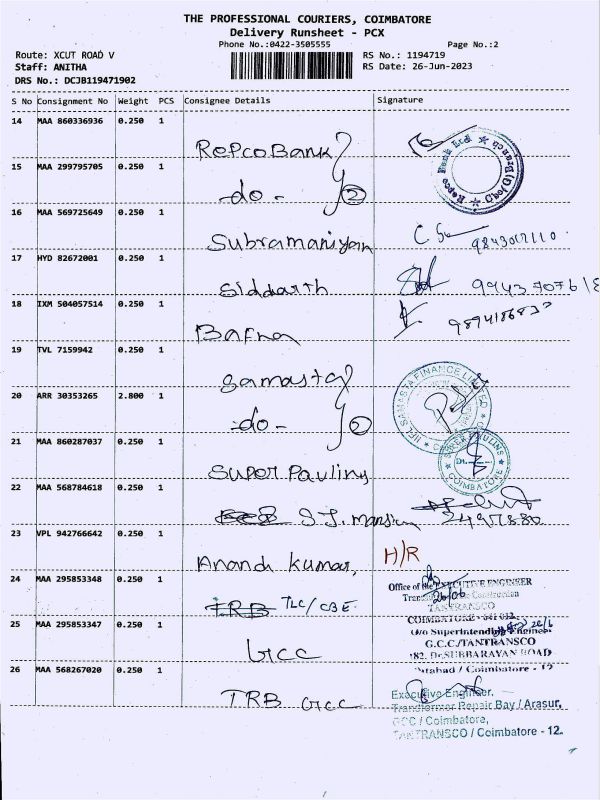 THE PROFESSIONAL COURIERS, COIMBATORE
Delivery Runsheet - PCX
Phone No.:0422-3505555 Page No.:2
Route: XCUT ROAD V RS No.: 1194719
Staff: ANITHA RS Date: 26-Jun-2023
DRS No.: DCJB119471902
S No Consignment No Weight PCS Consignee Details Signature
14 MAA 860336936 0.250 1 Repco Bank
15 MAA 299795705 0.250 1 -do- 2
Repco Bank Ltd
16 MAA 569725649 0.250 1 Subramaniyan
17 HYD 82672001 0.250 1 Siddarth
18 IXM 504057514 0.250 1 Bafna
19 TVL 7159942 0.250 1 Samasta
20 ARR 30353265 2.800 1 -do- 2
IIFL SAMASTA FINANCE LIMITED
21 MAA 860287037 0.250 1 Super Paulins
COIMBATORE
22 MAA 568784618 0.250 1
23 VPL 942766642 0.250 1 Anand Kumar, H/R
24 MAA 295853348 0.250 1 TLC/CBE
Office of the EXECUTIVE ENGINEER
TANTRANSCO
COIMBATORE - 641 012.
25 MAA 295853347 0.250 1 GCC
O/o Superintending Engineer
G.C.C./TANTRANSCO
182, Dr.SUBBARAYAN ROAD
Tatabad / Coimbatore - 12
26 MAA 568267020 0.250 1 TRB GCC
Executive Engineer,
Transformer Repair Bay / Arasur,
GCC / Coimbatore,
TANTRANSCO / Coimbatore - 12.